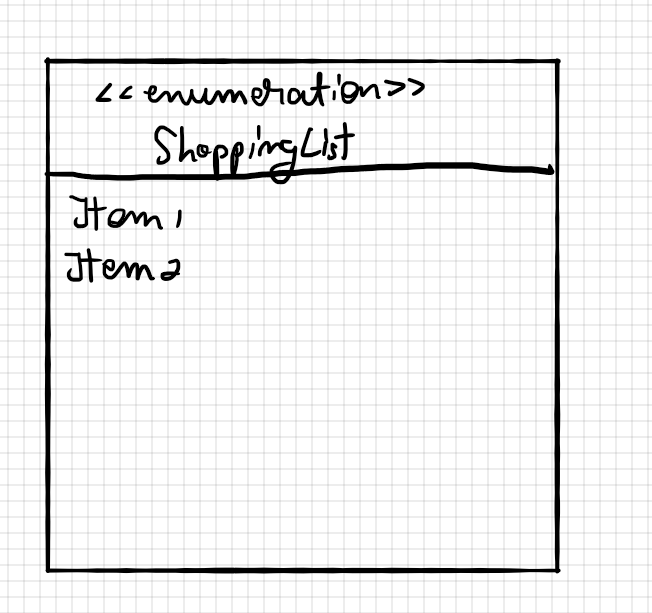 <<enumeration>>
ShoppingList
Item 1
Item 2